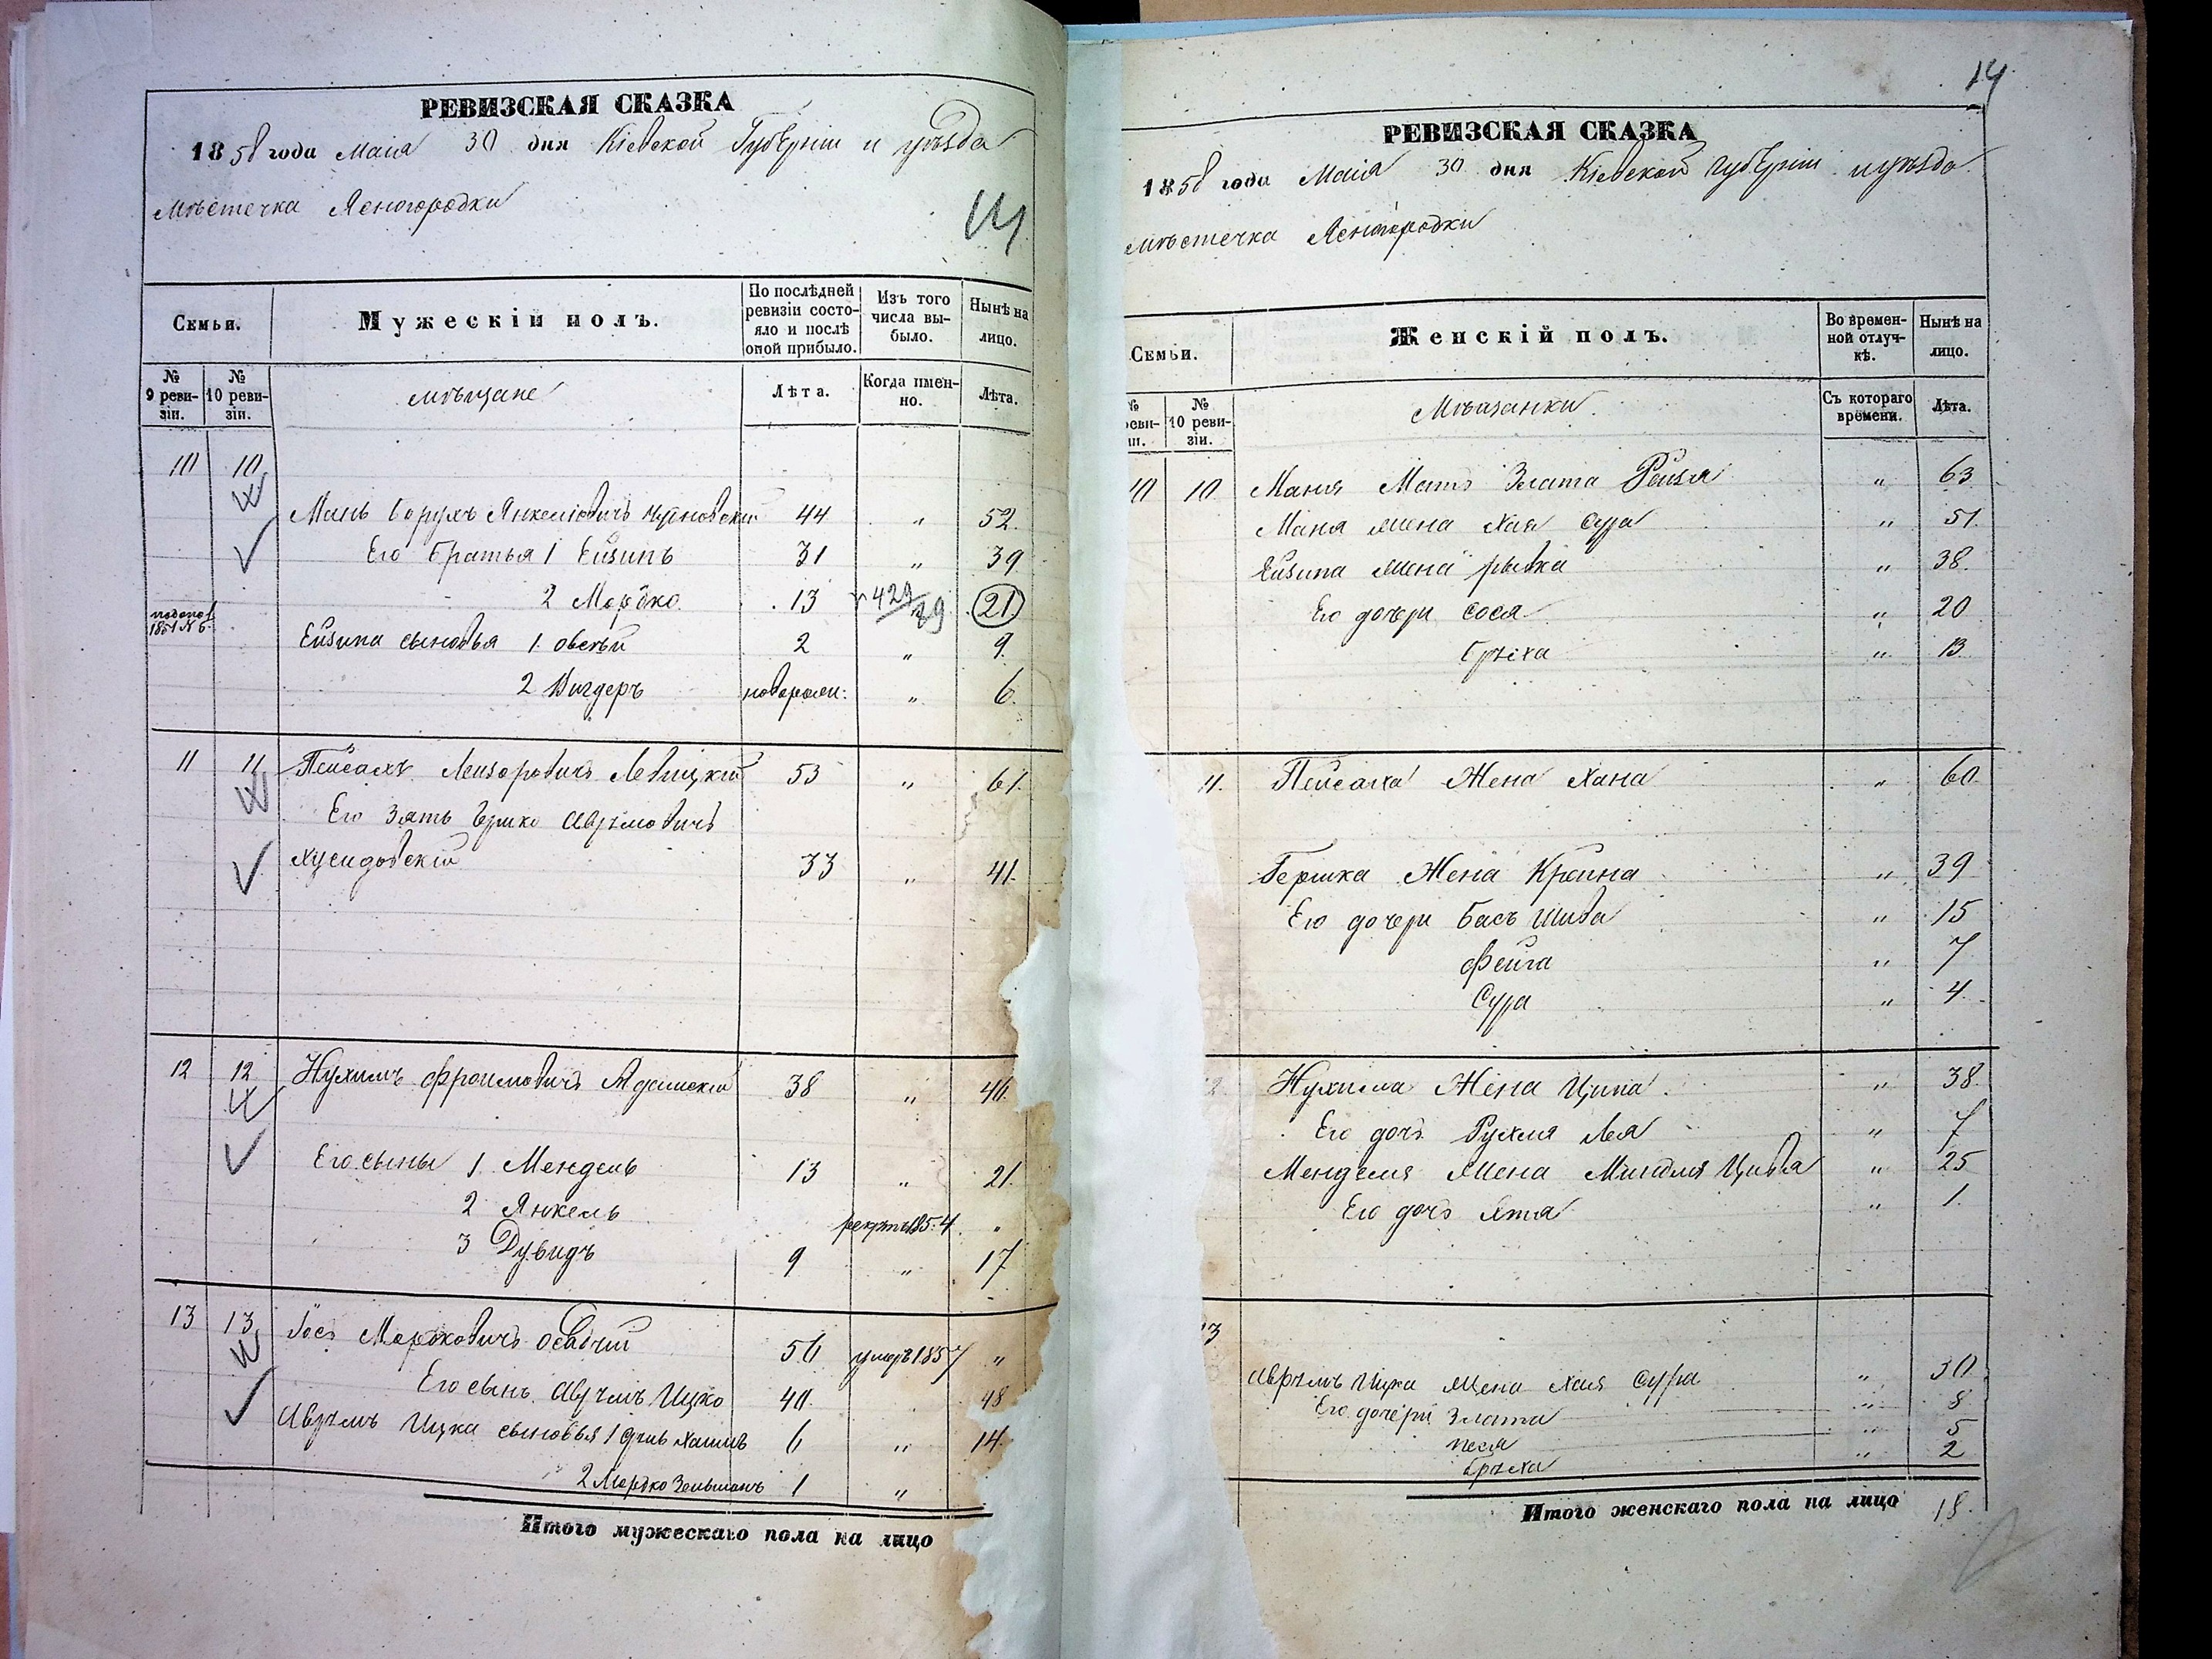 14
РЕВИЗСКАЯ СКАЗКА
1858 года Маія 30 дня Кіевской Губерніи и уѣзда
Мѣстечка Ясногородки
14
Семьи.
Мужескій полъ.
По послѣдней ревизіи состояло и послѣ оной прибыло.
Изъ того числа выбыло.
Нынѣ на лицо.
№ 9 ревизіи.
№ 10 ревизіи.
мѣщане
Лѣта.
Когда именно.
Лѣта.
10 10
Мань Борухъ Янкеліовичъ 44 " 52.
Его Братья 1 Ейзипъ 31 " 39
2 Мордко 13 429/29 21
1851 № 6
Ейзипа сыновья 1. Овсѣй 2 " 9.
2 Вигдеръ новорожд: " 6.
11 11 Пейсахъ Лейзоровичъ Левицкій 53 " 61.
Его Зять Гершко Аврумовичъ
Хусидовскій 33 " 41.
12 12 Нухимъ Фроимовичъ 38 " 46.
Его сыны 1. Мендель 13 " 21.
2 Янкель 185.4. "
3 Дувидъ 9 " 17
13 13 Іосъ Мордковичъ 56 умеръ 1857 "
Его сынъ Аврумъ Ицко 40 48
Аврумъ Ицка сыновья 1 6 " 14.
2 Мордко Зельманъ 1 "
Итого мужескаго пола на лицо
РЕВИЗСКАЯ СКАЗКА
1858 года Маія 30 дня Кіевской Губерніи и уѣзда
мѣстечка Ясногородки
Семьи.
Женскій полъ.
Во временной отлучкѣ.
Нынѣ на лицо.
№ 10 ревизіи.
Мѣщанки.
Съ котораго времени.
Лѣта.
10 10 Маня Мать Злата Рейзя " 63
Маня жена Хая Сура " 51.
Ейзипа жена рывка " 38.
Его дочери Сося " 20
Брѣха " 13.
11. Пейсаха Жена Хана " 60.
Гершка Жена Крейна " 39
Его дочери Бась Шива " 15
Фейга " 7
Сура " 4.
Нухима Жена Ципа. " 38.
Его дочь Рухля Лея " 7
Менделя Жена Миндля Цивья " 25
Его дочь Хтя " 1.
Аврумъ Ицка жена Хая Сура " 30
Его дочери Злата " 8
песя " 5
Брѣха " 2
Итого женскаго пола на лицо 18.